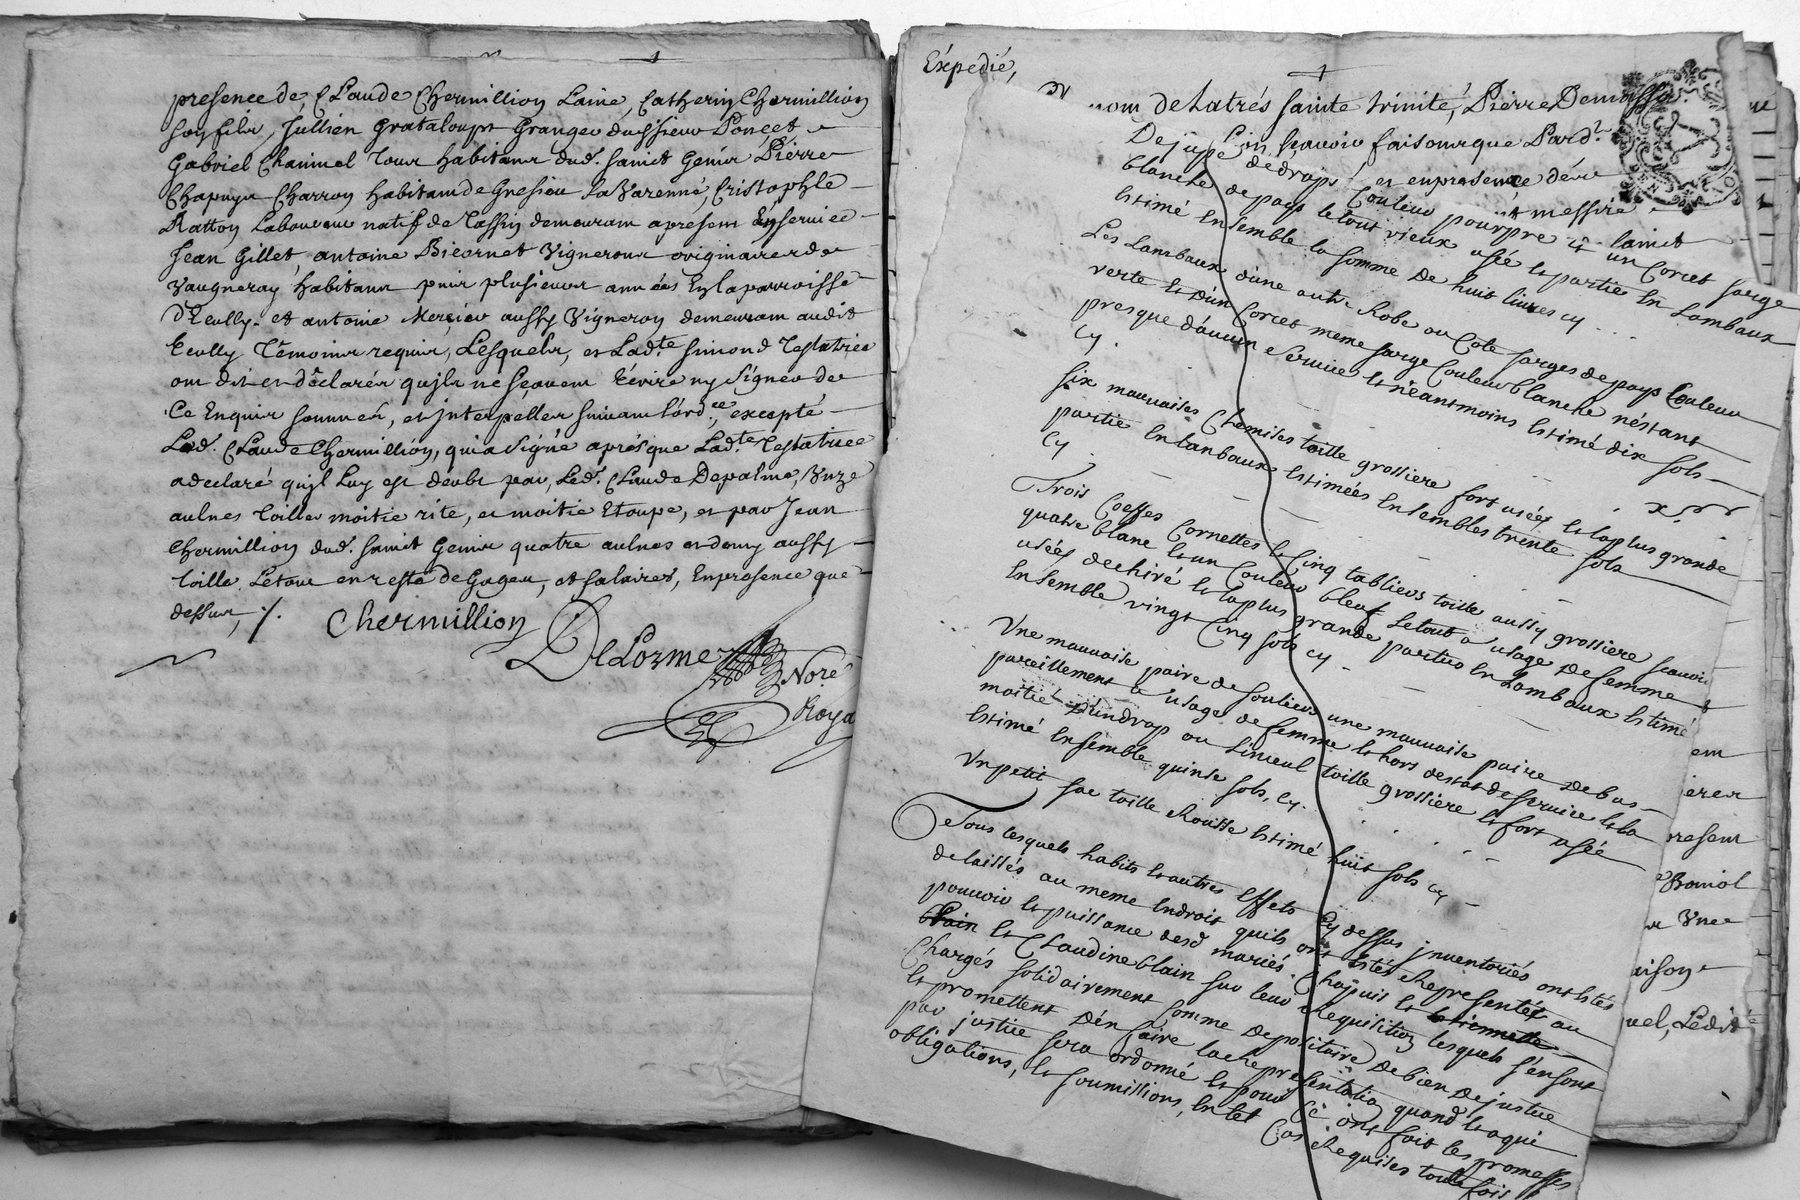 presence de, Claude Chermillion Laine, Catherin Chermillion
son fils, Jullien Grataloup Granger du sieur Poncet,
Gabriel Chaninel Tous habitans dud. sainct Genis Pierre
Chapuy Charron habitant de Gresieu La Varenne, Cristophle
Ratton Laboureur natif de Tassin demeurant apresent En service
Jean Gillet, antoine Bicornet Vignerons originaires de
Vaugneray habitans puis plusieurs années En la parroisse
d'Ecully. et antoine Mercier aussy Vigneron demeurant audit
Ecully Témoins requis, Lesquels, et Lad.te Simond Testatrice
ont dit et déclarés qu'jls ne sçavent Ecrire ny Signer de
Ce Enquis sommés, et jnterpellés suivant l'ord.ce excepté
Led. Claude Chermillion, qui a Signé aprés que Lad.te Testatrice
a declaré qu'jl Luy est deubt par, Led. Claude Depalme, Unze
aulnes Toilles moitie rite, et moitie Etoupe, et par Jean
Chermillion dud. sainct Genis quatre aulnes et demy aussy
Toille. Letout en reste de Gages, et salaires, En presence que
dessus, ./.
Chermillion
DeLorme
No.re
Roya
Expedié,
nom de La trés sainte trinité, Pierre Demassa
sçavoir faisons que Pard.
et en presence de
messire
sainct
De jupe de drap Couleur pourpre et un Corcet sarge
blanche de pays le tout vieux usé et partie En Lambaux
Estimé Ensemble la somme De huit livres cy
Les Lambaux d'une autre Robe ou Cote sarges de pays Couleur
verte et d'un Corcet meme sarge Couleur blanche n'estant
presque d'aucun Service et néantmoins Estimé dix sols
cy
Six mauvaises Chemises toille grossiere fort usées et la plus grande
partie En lanbaux Estimées Ensembles trente sols
cy
Trois Coeffes Cornettes et Cinq tabliers toille aussy grossiere sçavoir
quatre blanc et un Couleur bleuf Le tout a usage De femme
usées dechiré et la plus grande partie En Lambaux Estimé
Ensemble vingt Cinq sols cy
Une mauvaise paire de souliers une mauvaise paire De bas
pareillement a usage de femme et hors destat de service et la
moitié D'un drap ou Linceul toille grossiere et fort usée
Estimé Ensemble quinse sols, cy.
Un petit sac toille Rousse Estimé huit sols cy
Tous lesquels habits et autres Effets Cy dessus jnventoriés ont Estés
delaissés au meme Endroit quils ont Estés Representés au
pouvoir et puissance desd mariés. Chapuis et
et Claudine blain sur leur Requisition lesquels s'en sont
Chargés solidairement Comme Depositaire De bien De justice
et promettent D'en faire la Representation quand et a qui
par justice sera ordonné et pour Ce ont fait les promesses
obligations, et soumissions, En tel Cas Requises toute fois
em
erer
resent
Vne
aison
uel, Ledit